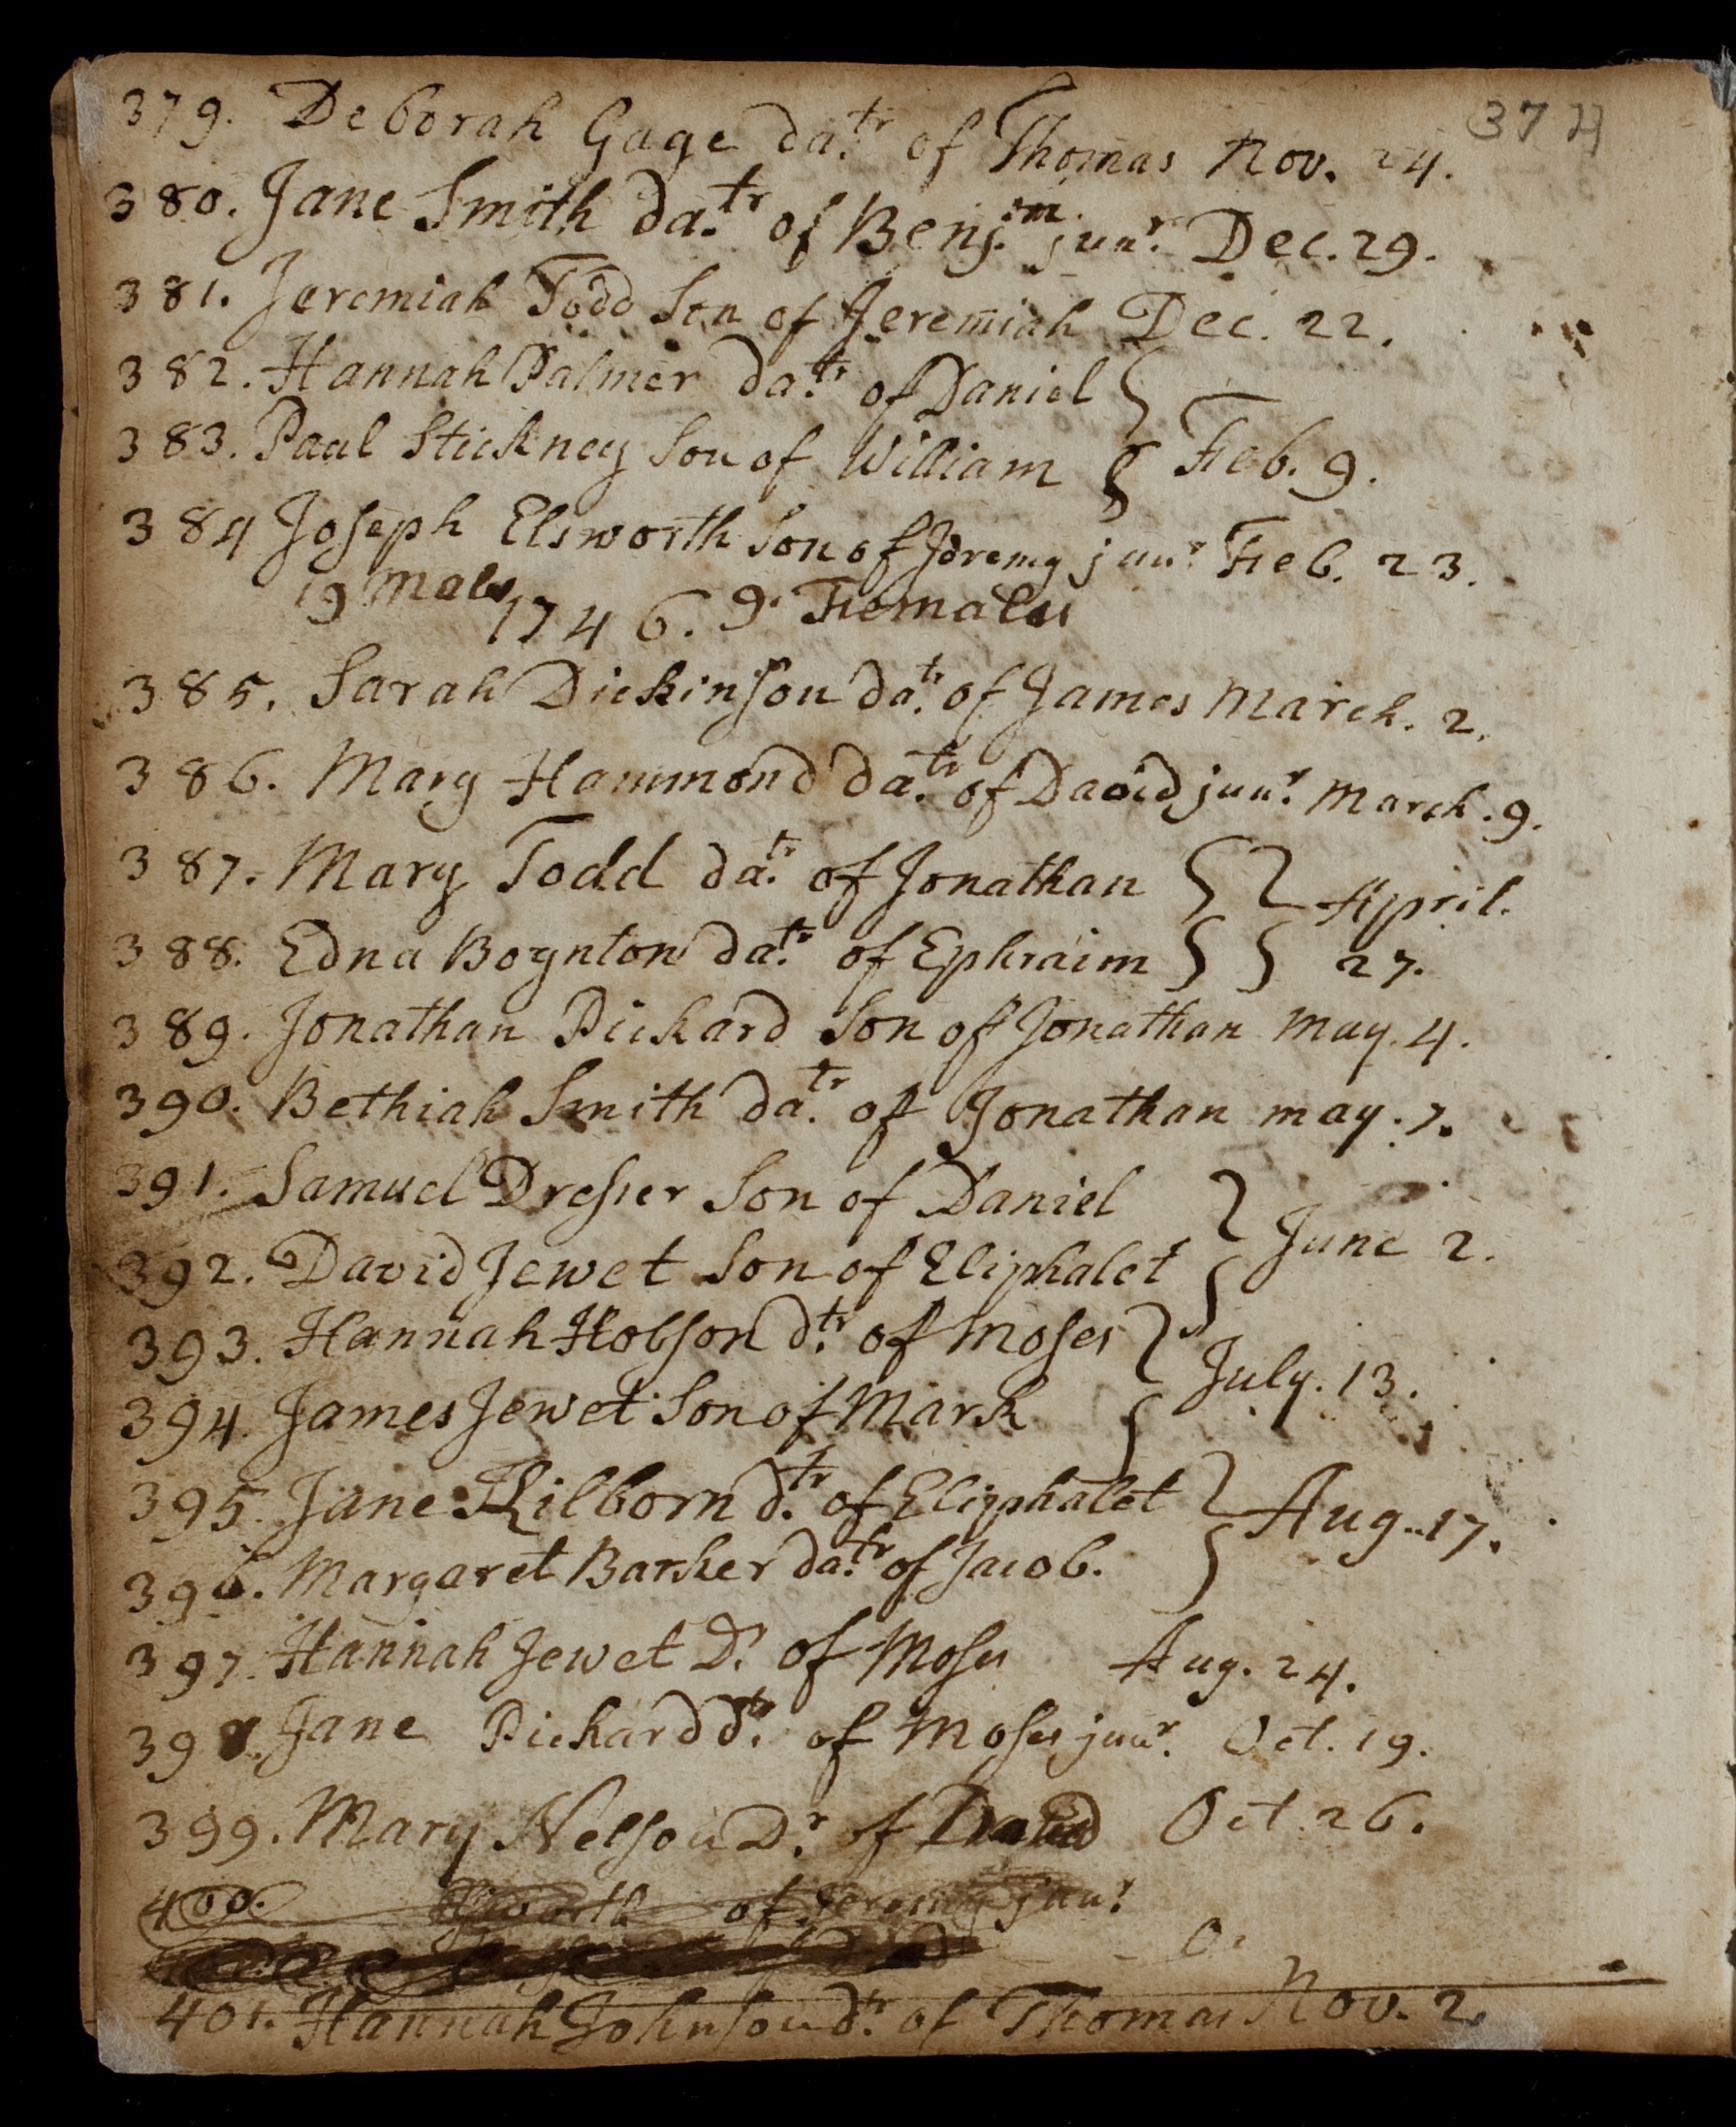 374
379. Deborah Gage da.tr of Thomas Nov. 24.
380. Jane Smith da.tr of Benj.m junr. Dec. 29.
381. Jeremiah Todd Son of Jeremiah Dec. 22.
382. Hannah Palmer da.tr of Daniel
383. Paul Stickney Son of William } Feb. 9.
384 Joseph Elsworth Son of Jeremy junr. Feb. 23.
19 Males 1746. 9. Females
385. Sarah Dickinson da.tr of James March. 2.
386. Mary Hammond da.tr of David junr. March. 9.
387. Mary Todd da.tr of Jonathan } } April.
388. Edna Boynton da.tr of Ephraim } } 27.
389. Jonathan Pickard Son of Jonathan May. 4.
390. Bethiah Smith da.tr of Jonathan may. 7.
391. Samuel Dresser Son of Daniel
392. David Jewet Son of Eliphalet } June 2.
393. Hannah Hobson d.tr of Moses
394. James Jewet Son of Mark } July. 13.
395. Jane Kilborn d.tr of Eliphalet } Aug. 17.
396. Margaret Barker da.tr of Jacob.
397. Hannah Jewet D. of Moses Aug. 24.
398. Jane Pickard d.tr of Moses junr. Oct. 19.
399. Mary Nelson D.r of David Oct. 26.
400. of Jeremy junr.
401. Hannah Johnson d.tr of Thomas Nov. 2.